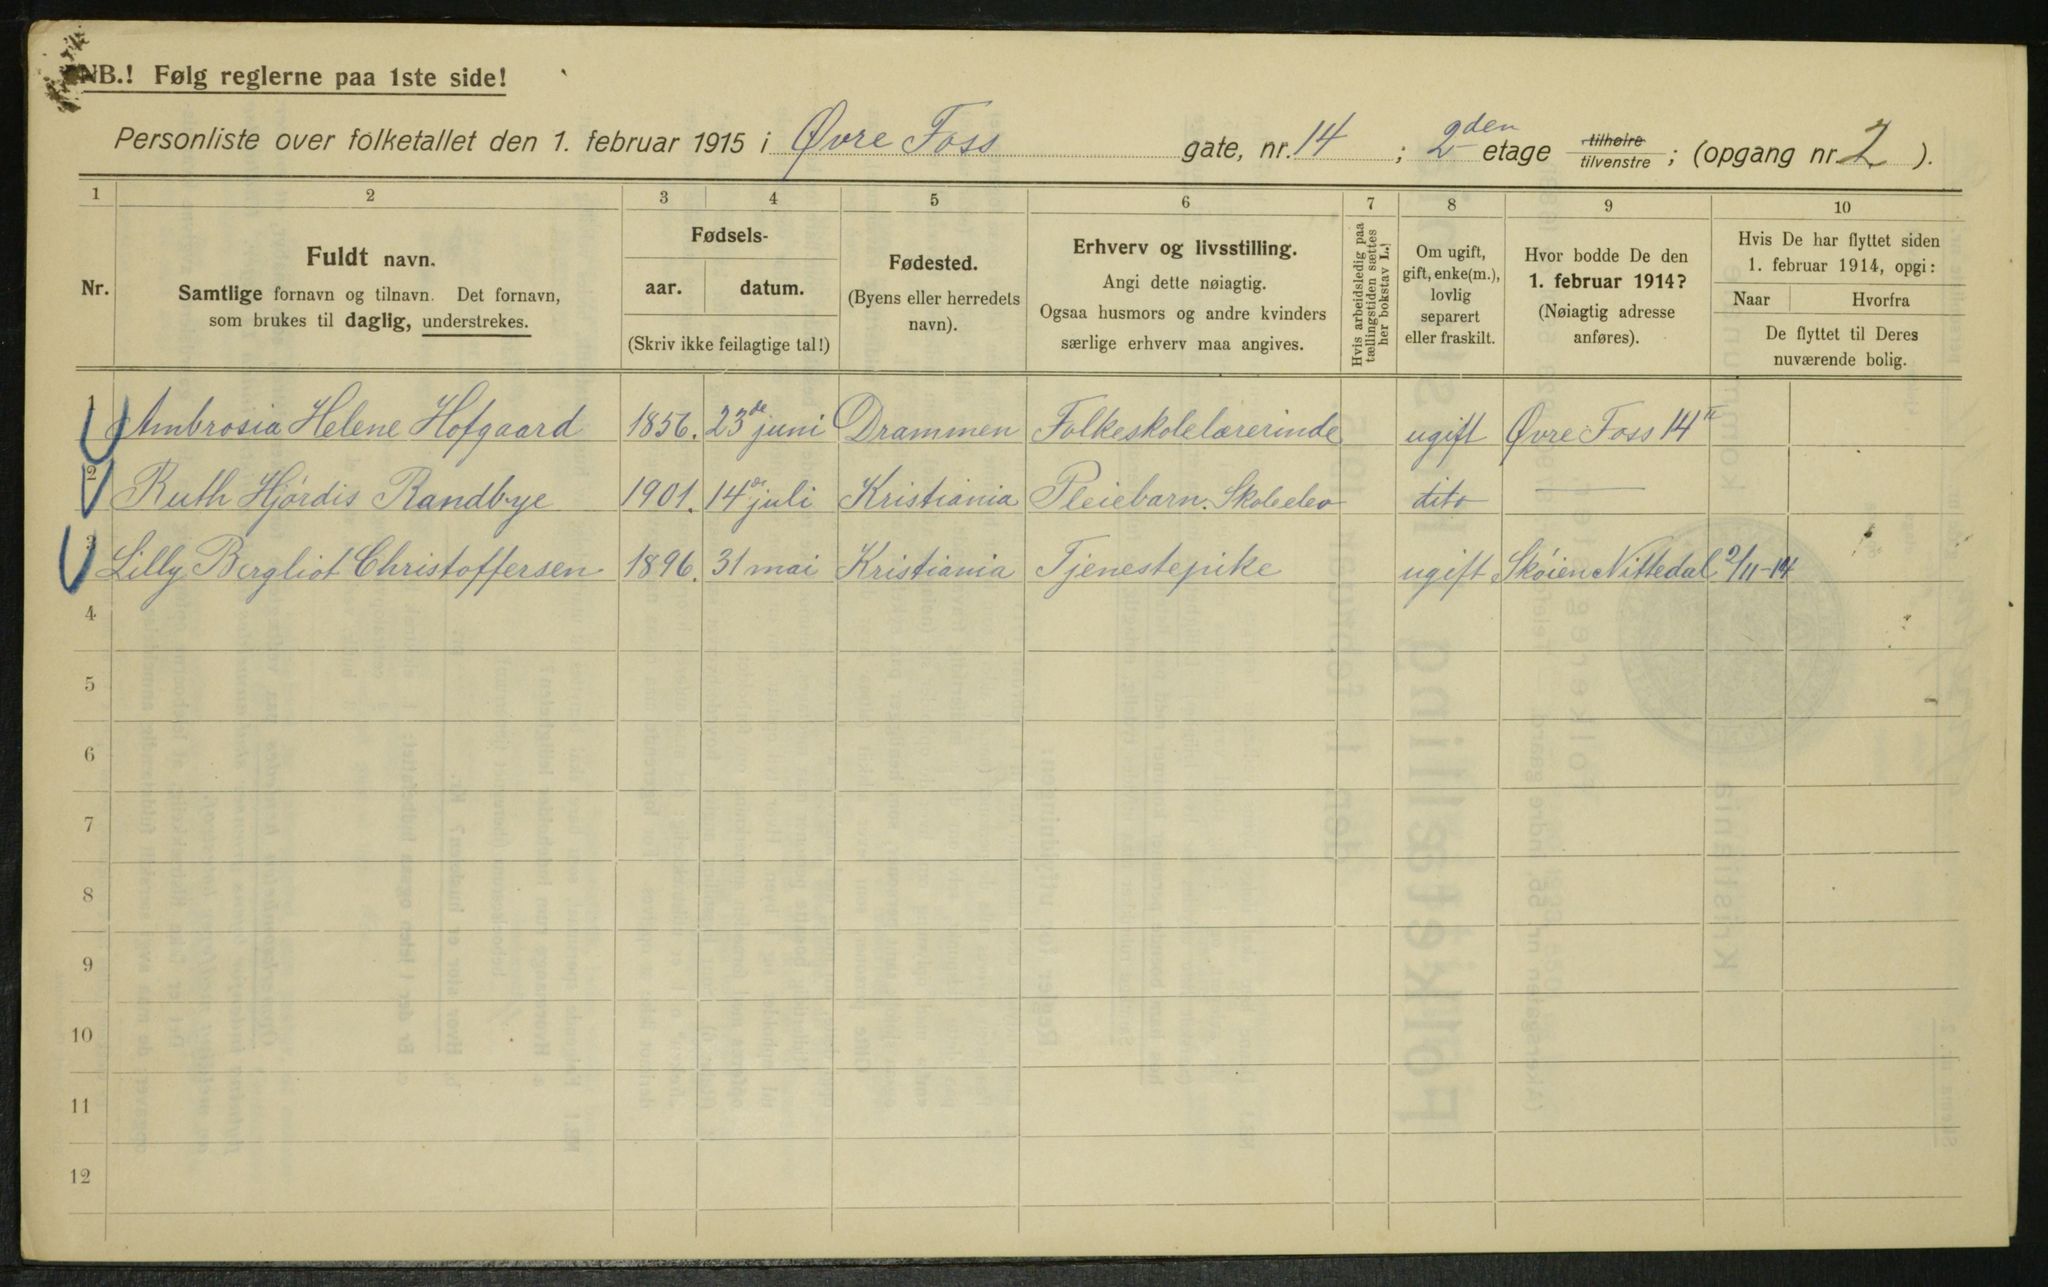 NB.! Følg reglerne paa 1ste side!
Personliste over folketallet den 1. februar 1915 i Øvre Foss gate, nr. 14 ; 2den etage tilhøire tilvenstre ; (opgang nr. 2 ).
1 2 3 4 5 6 7 8 9 10
Nr.
Fuldt navn.
Samtlige fornavn og tilnavn. Det fornavn,
som brukes til daglig, understrekes.
Fødsels-
aar. datum.
(Skriv ikke feilagtige tal!)
Fødested.
(Byens eller herredets
navn).
Erhverv og livsstilling.
Angi dette nøiagtig.
Ogsaa husmors og andre kvinders
særlige erhverv maa angives.
Hvis arbeidsledig paa
tællingstiden sættes
her bokstav L.!
Om ugift,
gift, enke(m.),
lovlig
separert
eller fraskilt.
Hvor bodde De den
1. februar 1914?
(Nøiagtig adresse
anføres).
Hvis De har flyttet siden
1. februar 1914, opgi:
Naar Hvorfra
De flyttet til Deres
nuværende bolig.
1 Ambrosia Helene Hofgaard 1856. 23de juni Drammen Folkeskolelærerinde ugift Øvre Foss 14 II
2 Ruth Hjördis Randbye 1901. 14de juli Kristiania Pleiebarn. Skoleelev dito —
3 Lilly Bergliot Christoffersen 1896. 31 mai Kristiania Tjenestepike ugift Skøien Nittedal 2/11-14
4
5
6
7
8
9
10
11
12